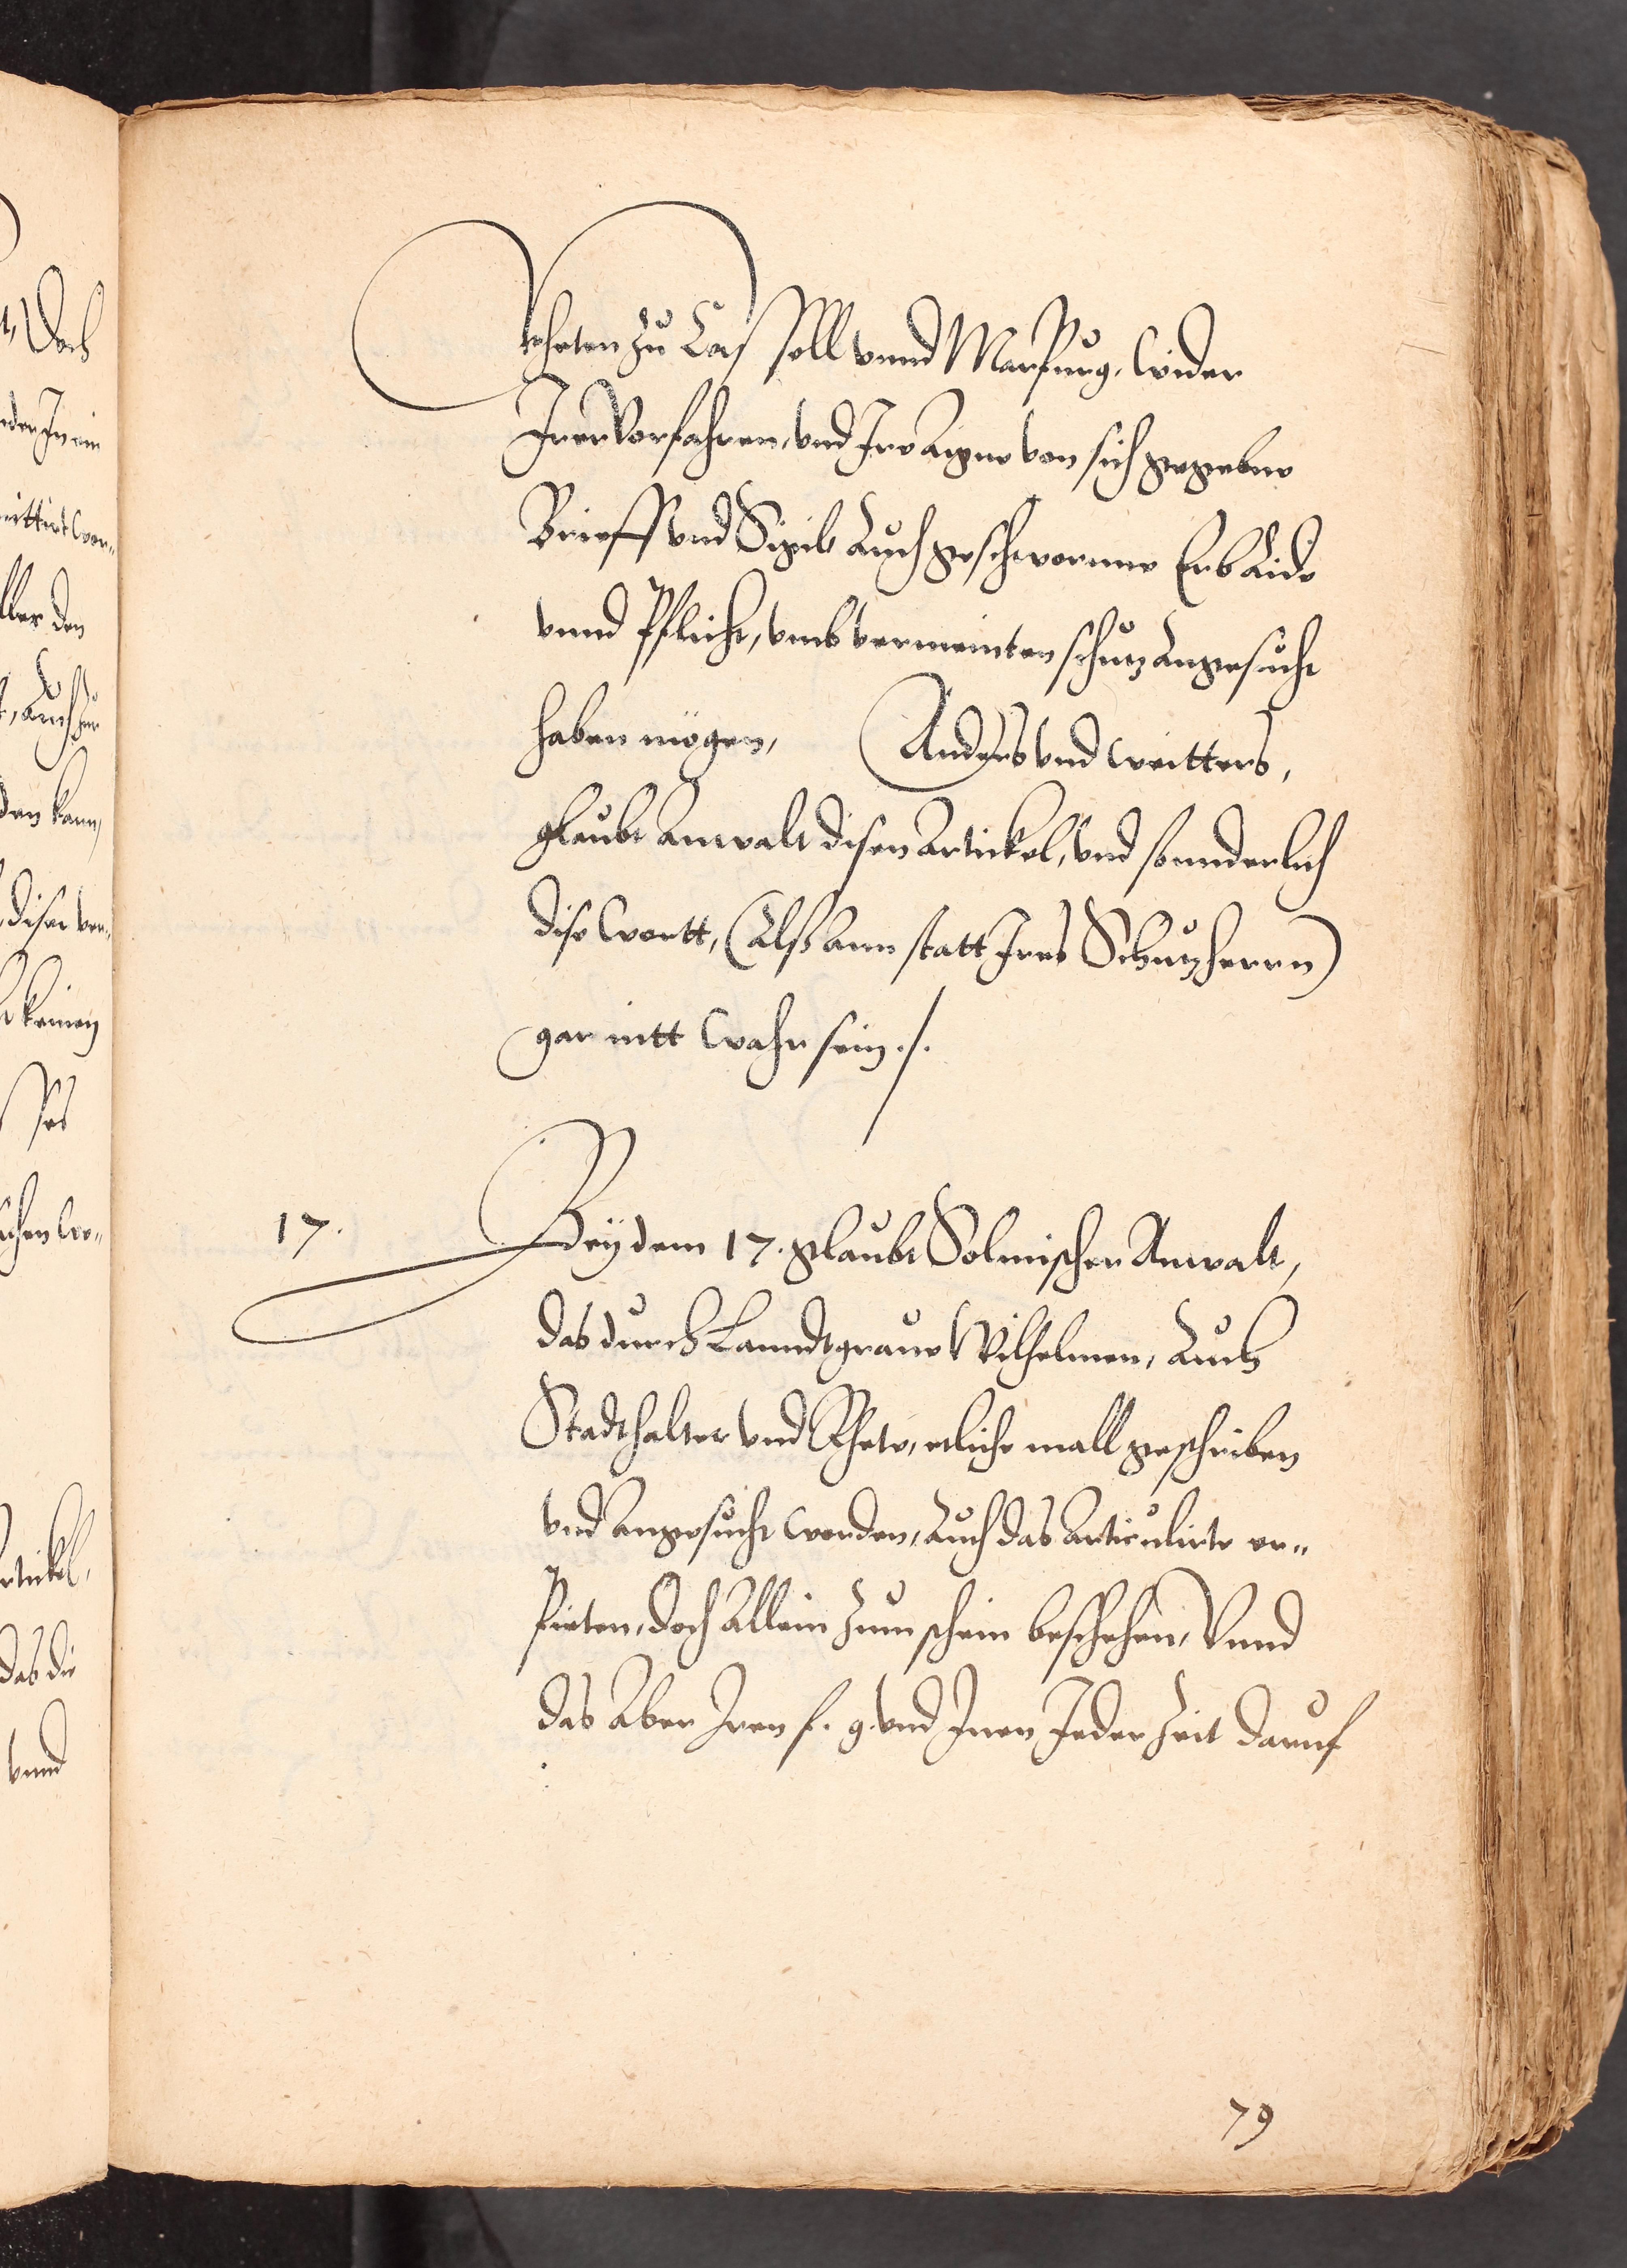 Rheten zu Cas soll vnnd Marpurg, wider
Irer Vorfahren, vnd Ire aigne von sich gegebne
Brieff vnd Sigeb Auch geschworne Erb Aide
vnnd Pflicht, vmb vermeinten schutz Angesucht
haben mögen, Anders vnd weitters,
glaubt anwalt disen Artickel, vnd sonnderlich
dise wortt, (Alß ann statt Ires Schutzherrn)
gar nitt wahr sein ./.
17. Bey dem 17. glaubt Solmischer Anwalt,
das durch Lanndtgraue Wilhelmen, Auch
Stadthalter vnd Rhete, etliche mall geschriben
vnd Angesucht worden, Auch das Articulirte er-
pieten, doch Allein zum schein beschehen, Vnnd
das Aber Iren f. g. vnd Inen Jeder Zeit daruf
79
Doch
ller den
den kann,
diser
keinen
das die
vnnd